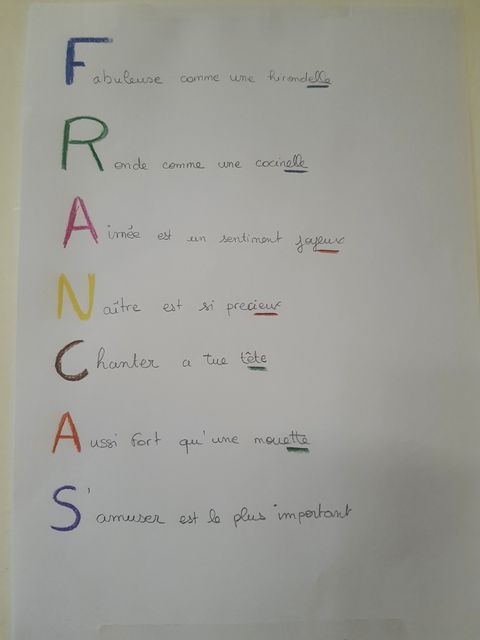 Fabuleuse comme une hirondelle
Ronde comme une cocinelle
Aimée est un sentiment joyeux
Naître est si precieux
Chanter a tue tête
Aussi fort qu'une mouette
S'amuser est le plus important